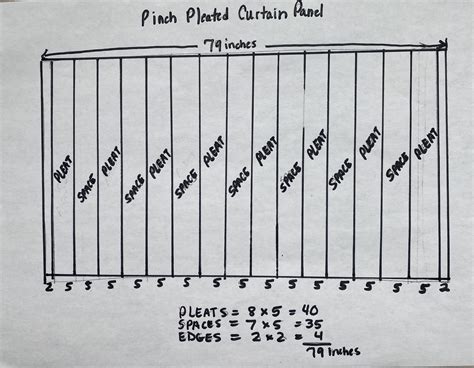 Pinch Pleated Curtain Panel
79 inches
PLEAT SPACE PLEAT SPACE PLEAT SPACE PLEAT SPACE PLEAT SPACE PLEAT SPACE PLEAT SPACE PLEAT
2 5 5 5 5 5 5 5 5 5 5 5 5 5 5 5 2
PLEATS = 8 x 5 = 40
SPACES = 7 x 5 = 35
EDGES = 2 x 2 = 4
79 inches